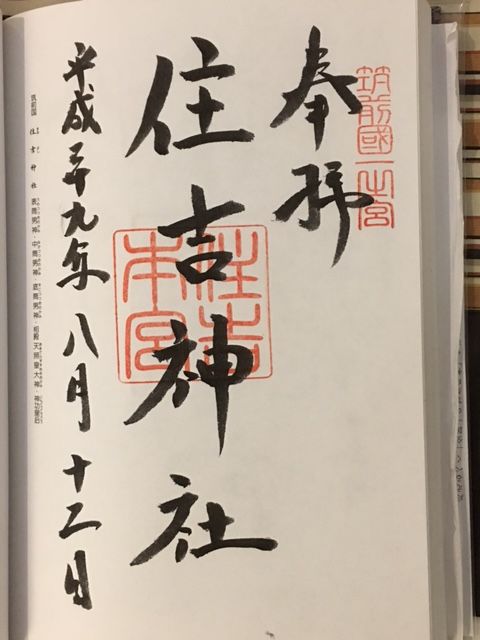 奉拝
筑前國一之宮
住吉神社
住吉本宮
平成二十九年八月十二日
筑前国 住吉神社 表筒男神・中筒男神・底筒男神・相殿 天照皇大神・神功皇后